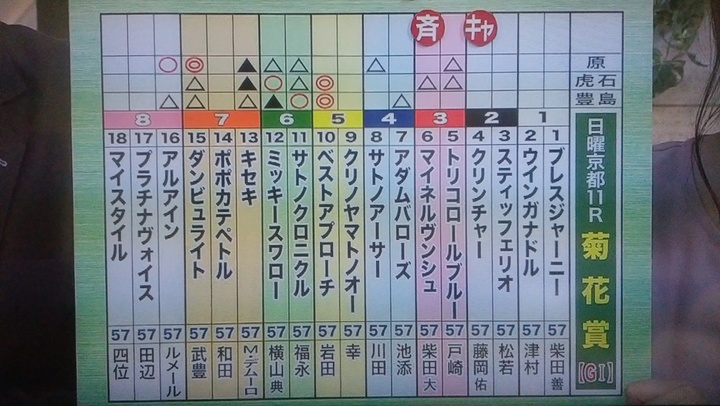 斉 キャ
原 △ △ △ △ ▲ ◎ ○
虎石 △ △ ◎ △ ○ ▲ △
豊島 △ ◎ ○ ▲ △ △ △
日曜京都11R 菊花賞【GI】
1 2 3 4 5 6 7 8
1 ブレスジャーニー 57 柴田善
2 ウインガナドル 57 津村
3 スティッフェリオ 57 松若
4 クリンチャー 57 藤岡佑
5 トリコロールブルー 57 戸崎
6 マイネルヴンシュ 57 柴田大
7 アダムバローズ 57 池添
8 サトノアーサー 57 川田
9 クリノヤマトノオー 57 幸
10 ベストアプローチ 57 岩田
11 サトノクロニクル 57 福永
12 ミッキースワロー 57 横山典
13 キセキ 57 M・デムーロ
14 ポポカテペトル 57 和田
15 ダンビュライト 57 武豊
16 アルアイン 57 ルメール
17 プラチナヴォイス 57 田辺
18 マイスタイル 57 四位